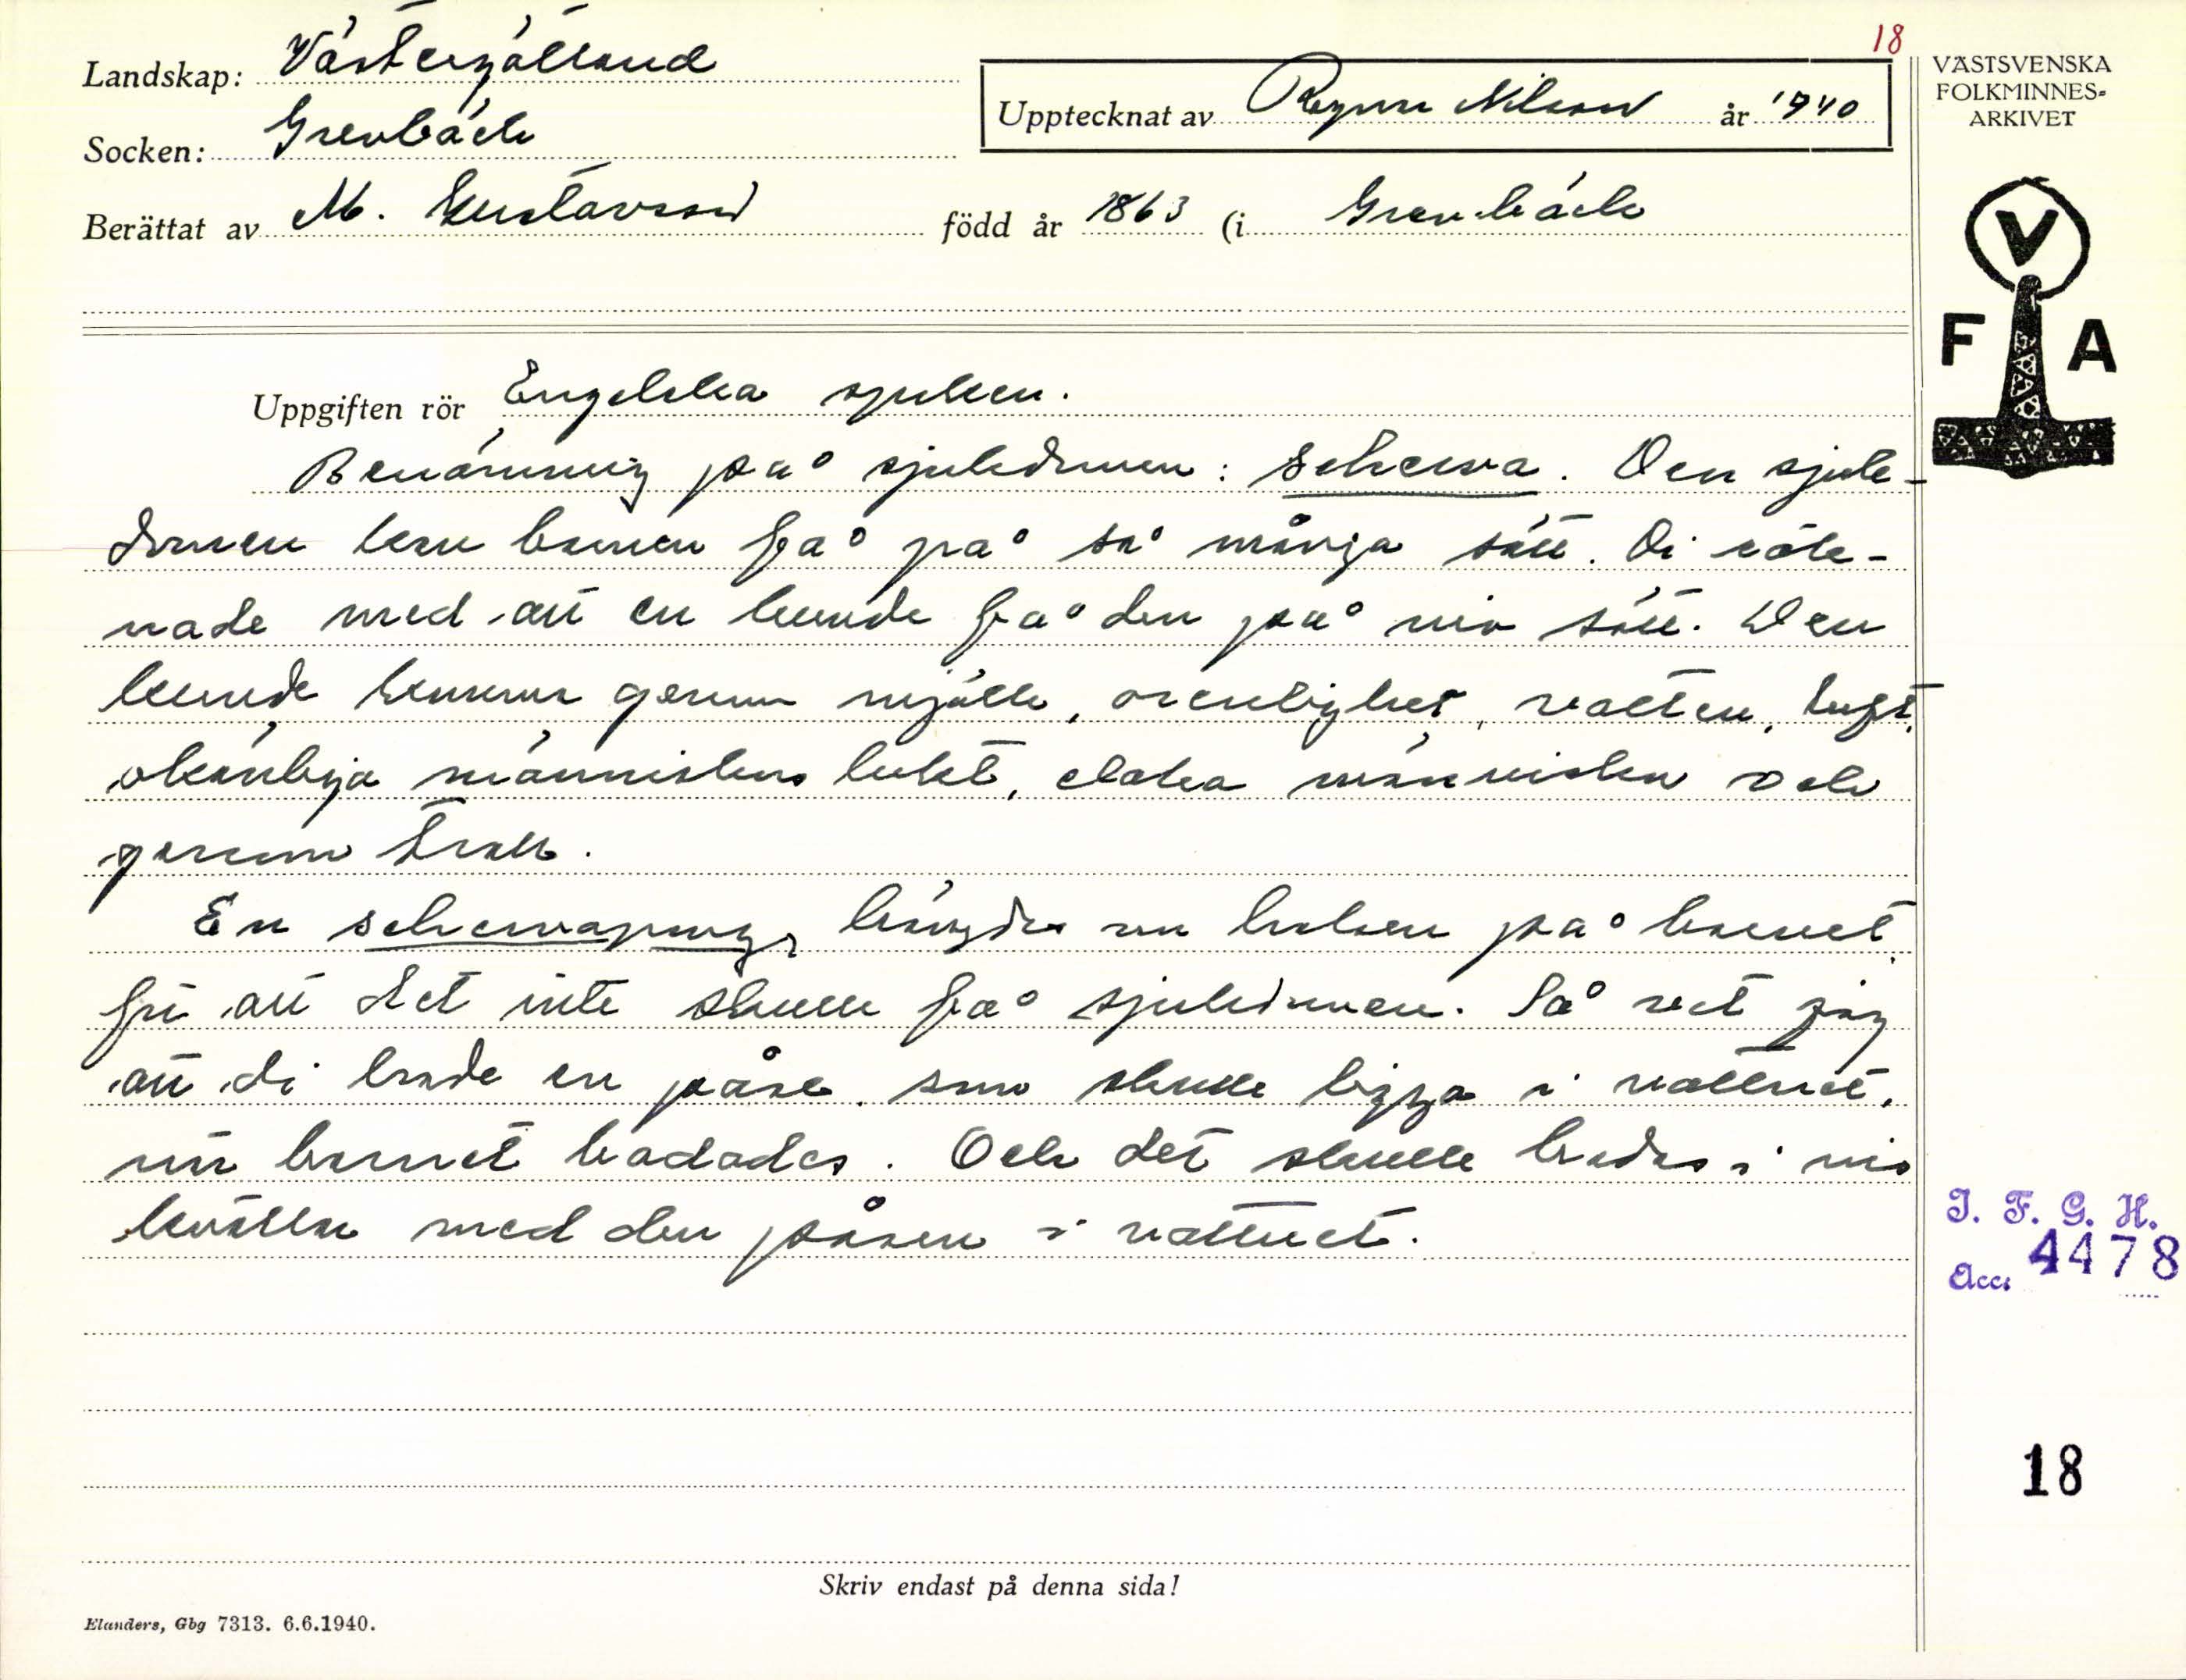 18
Landskap: Västergötland
Socken: Grevbäck
Upptecknat av Ragnar Nilsson år 1940
Berättat av M. Gustavsson född år 1863 (i Grevbäck
VÄSTSVENSKA
FOLKMINNES-
ARKIVET
V
F A
Uppgiften rör Engelska sjukan.
Benämning på sjukdomen: skerva. Den sjuk-
domen kan barnen få på så många sätt. Di räk-
nade med att en kunde få den på nio sätt. Den
kunde komma genom mjölk, orenlighet, vatten, luft,
okänliga människors lukt, elaka människor och
genom troll.
En skervapung hängdes om halsen på barnet
för att det inte skulle få sjukdomen. Så vet jag
att di hade en påse som skulle ligga i vattnet,
när barnet badades. Och det skulle badas i nio
kvällar med den påsen i vattnet.
I. F. G. H.
Acc. 4478
18
Skriv endast på denna sida!
Elanders, Gbg 7313. 6.6.1940.